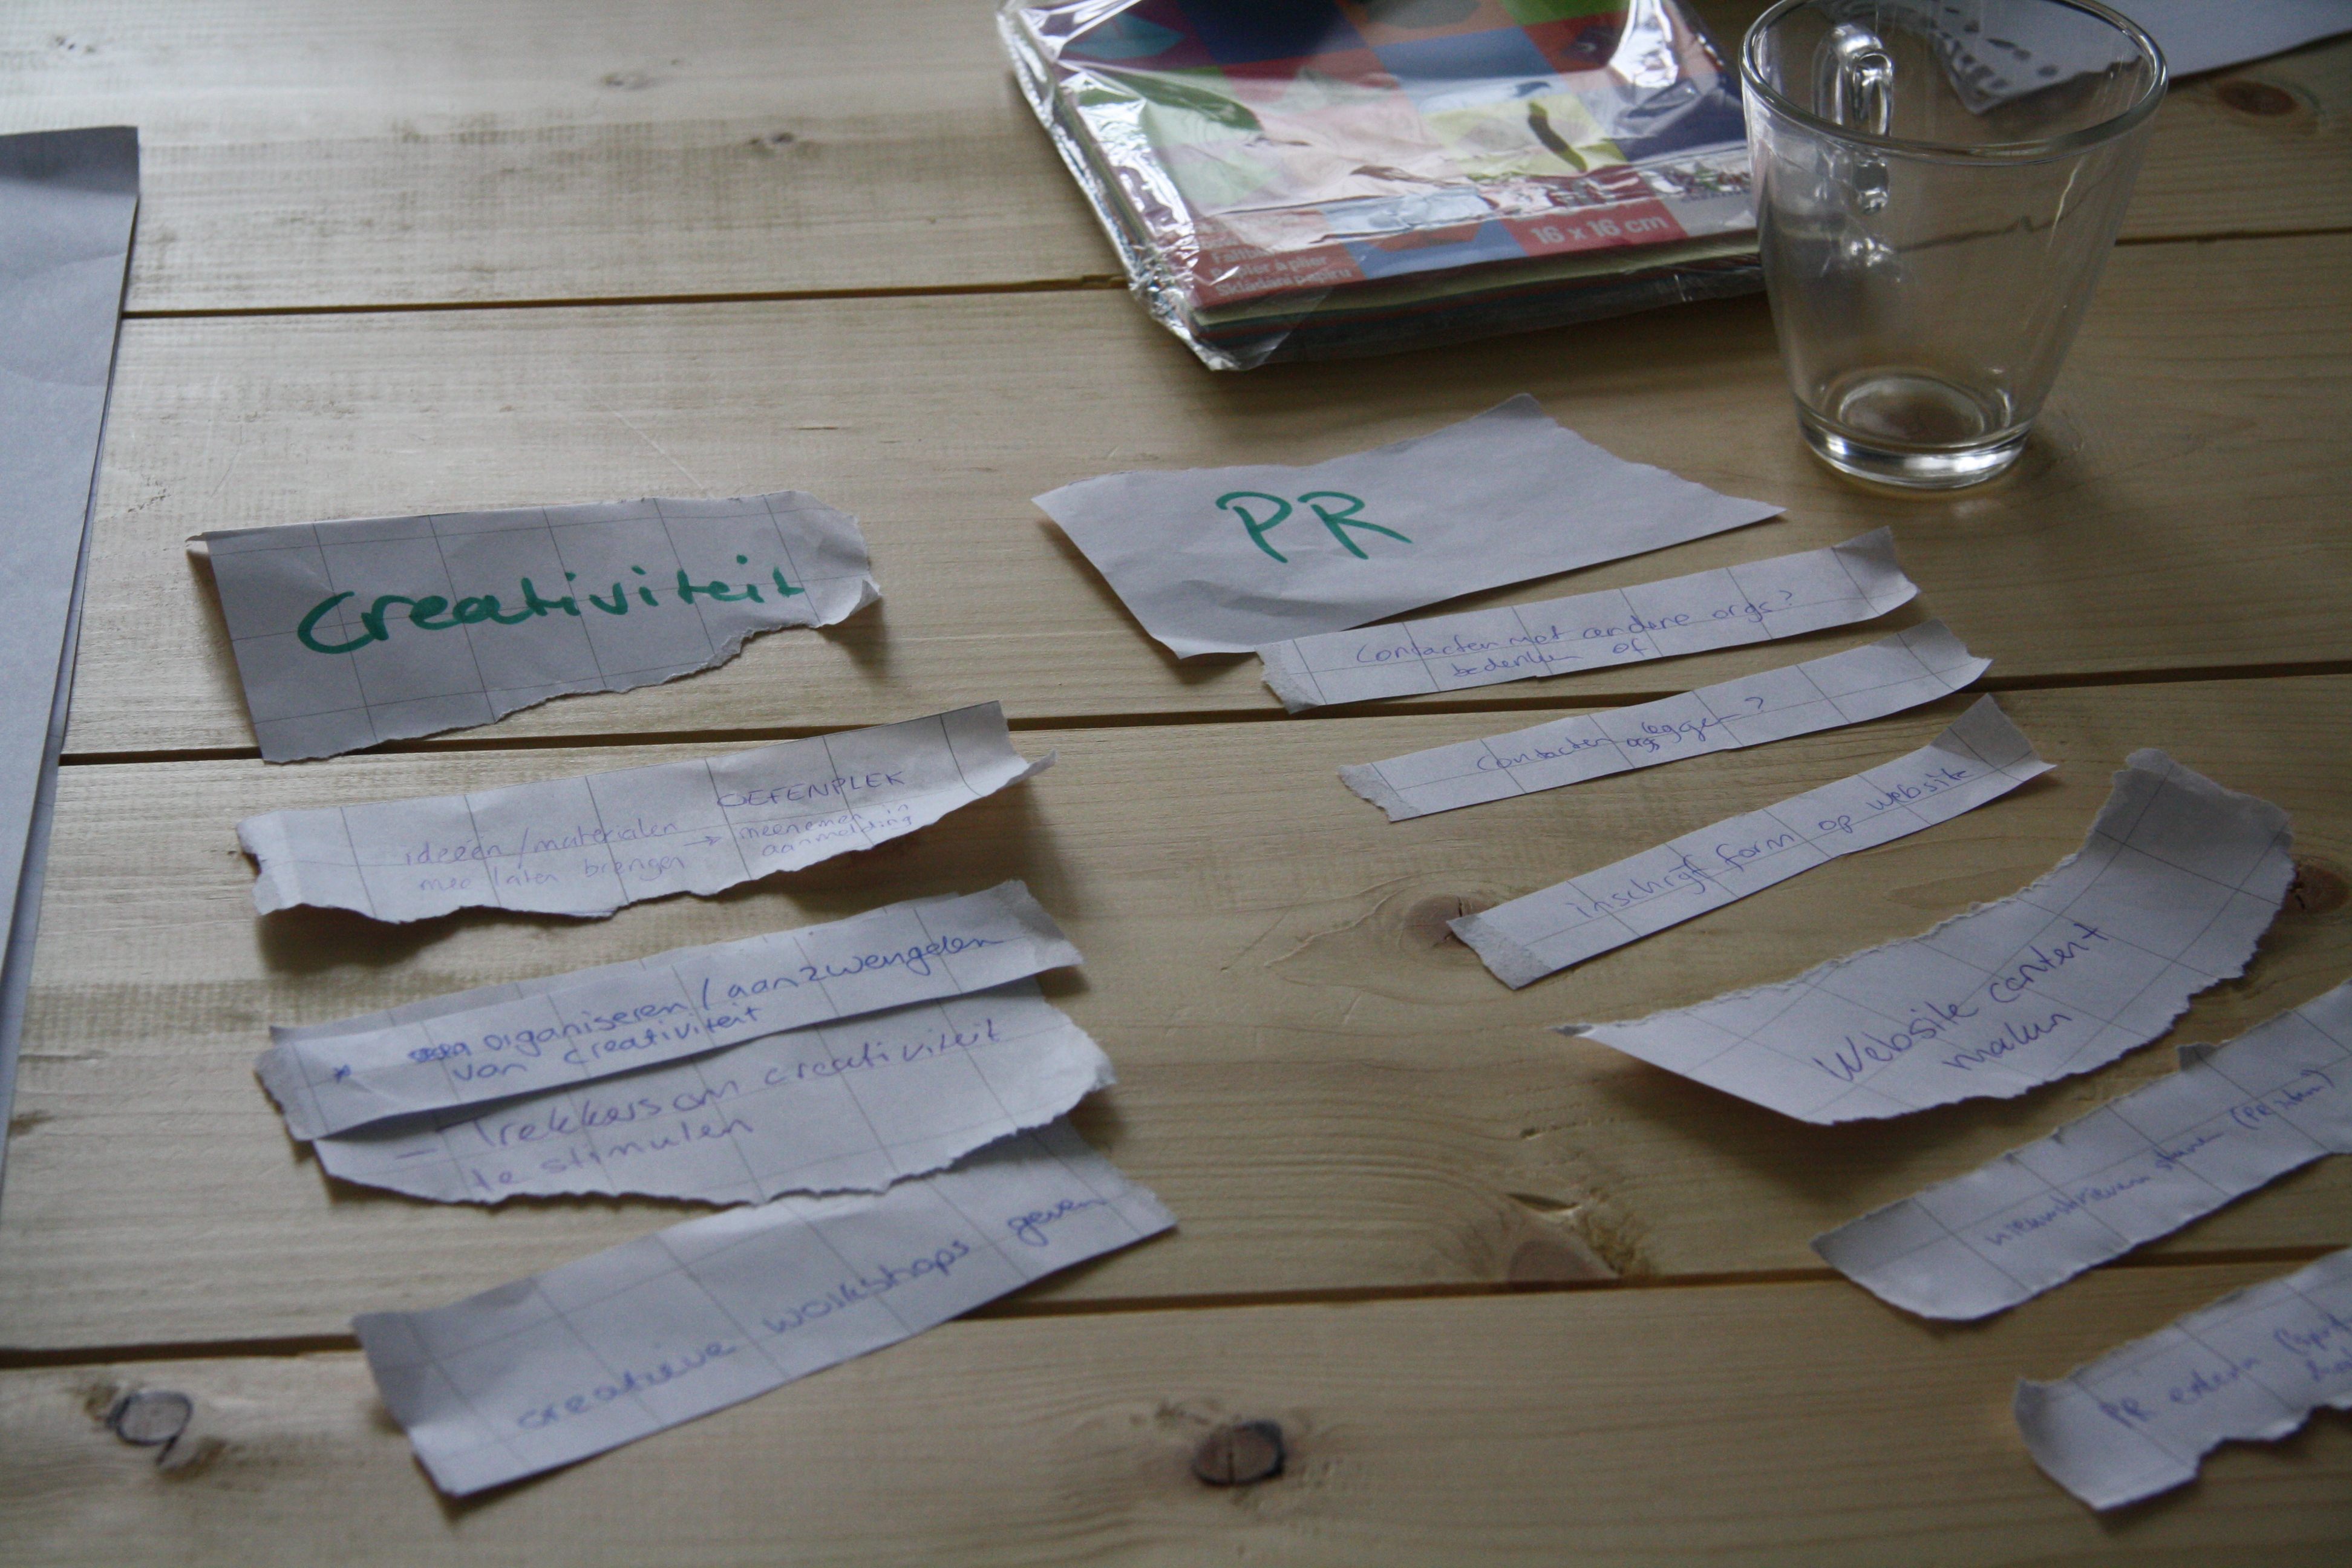 16 x 16 cm
Papier à plier
Skládání papiru
Creativiteit
OEFENPLEK
ideeën / materialen → meenemen in
mee laten brengen aanmelding
* organiseren / aanzwengelen
van creativiteit
- Trekkers om creativiteit
te stimulen
creatieve workshops geven
PR
Contacten met andere orgs?
bedenken of
Contacten leggen?
inschrijf form op website
Website content
maken
nieuwsbrieven sturen (PR
PR extern